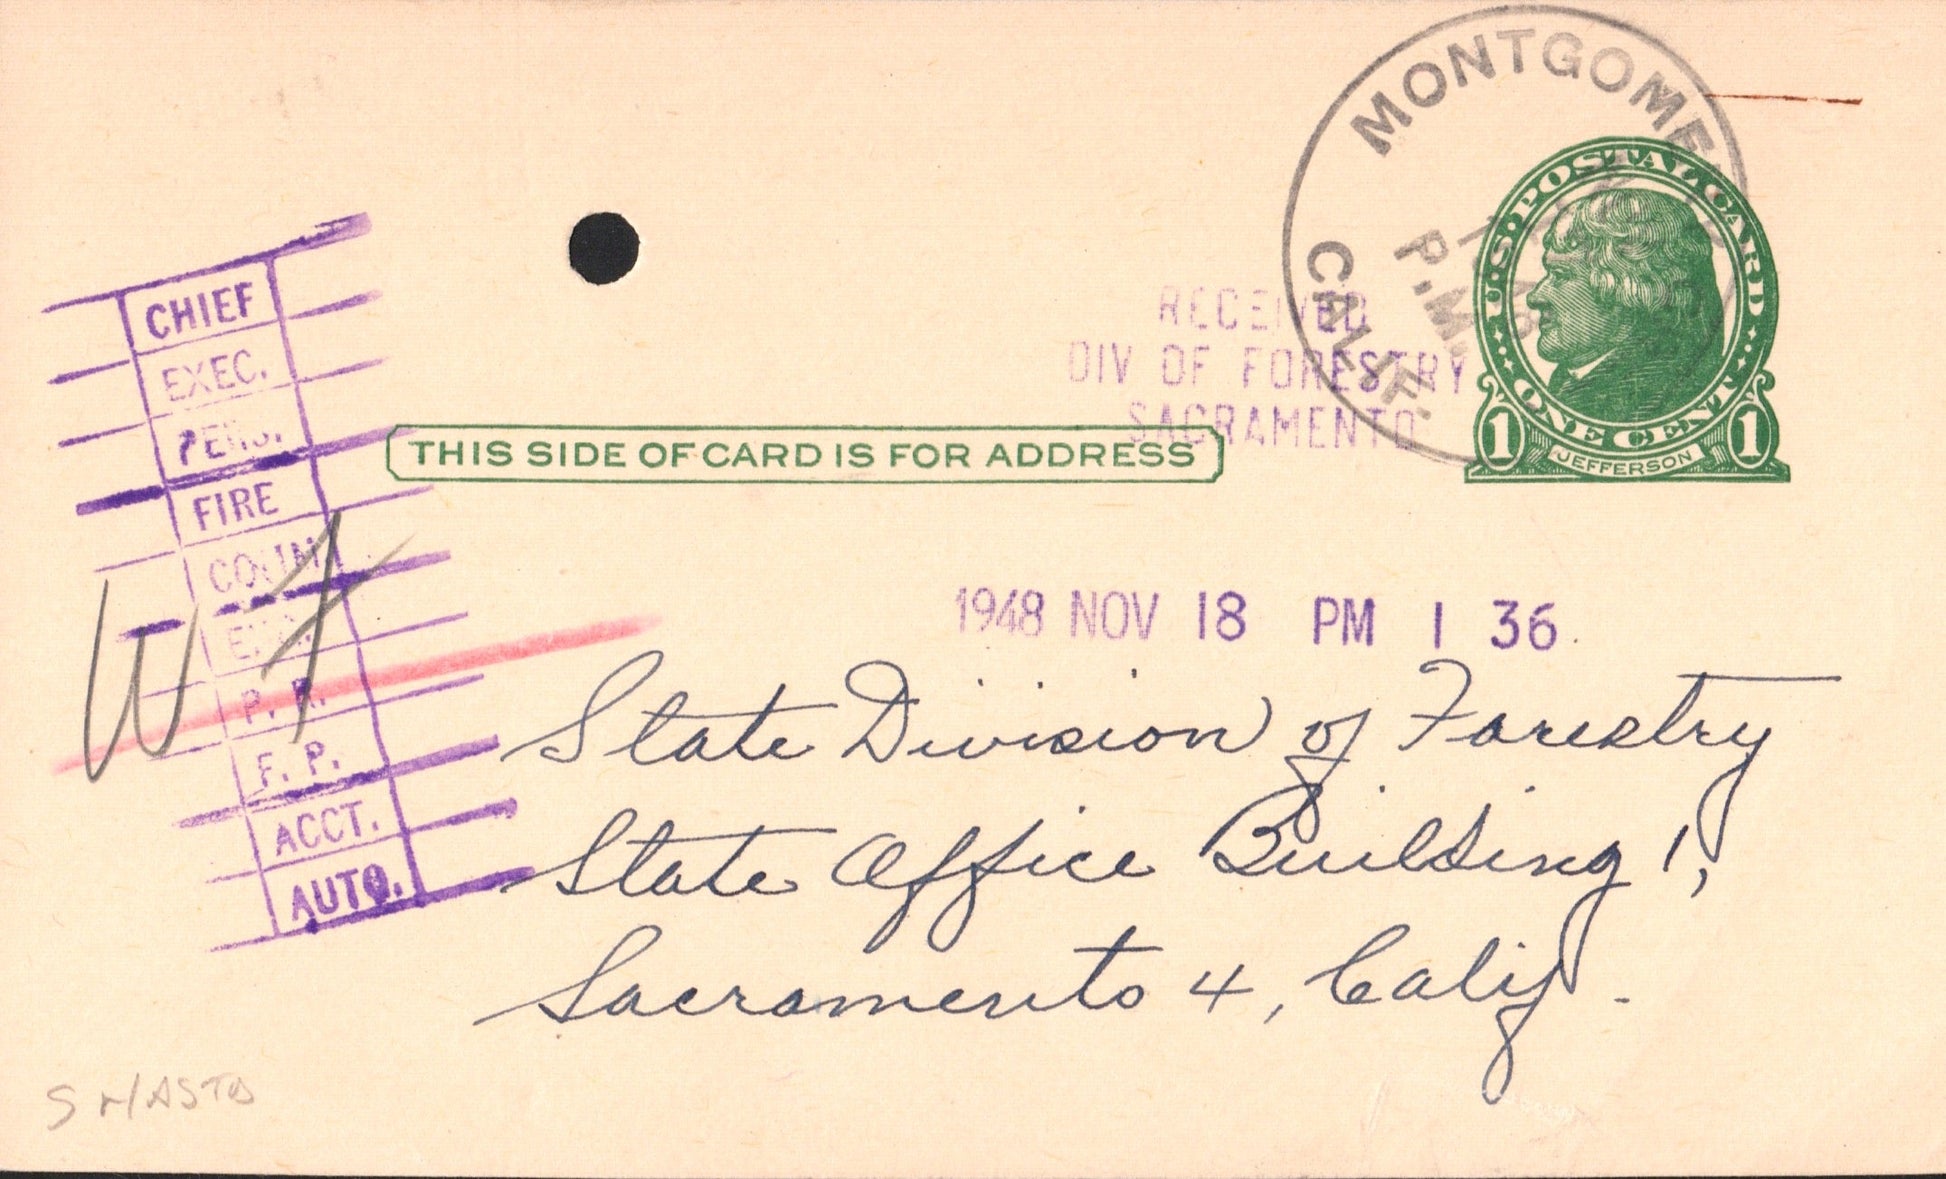 MONTGOME
CALIF.
P.M.
U.S. POSTAL CARD
ONE CENT
1 1
JEFFERSON
RECEIVED
DIV OF FORESTRY
SACRAMENTO
THIS SIDE OF CARD IS FOR ADDRESS
CHIEF
EXEC.
PERS.
FIRE
P. R.
F. P.
ACCT.
AUTO.
1948 NOV 18 PM 1 36
State Division of Forestry
State Office Building 1,
Sacramento 4, Calif.
SHASTA